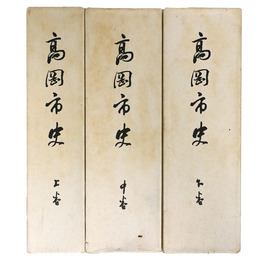 高岡市史
上巻
高岡市史
中巻
高岡市史
下巻